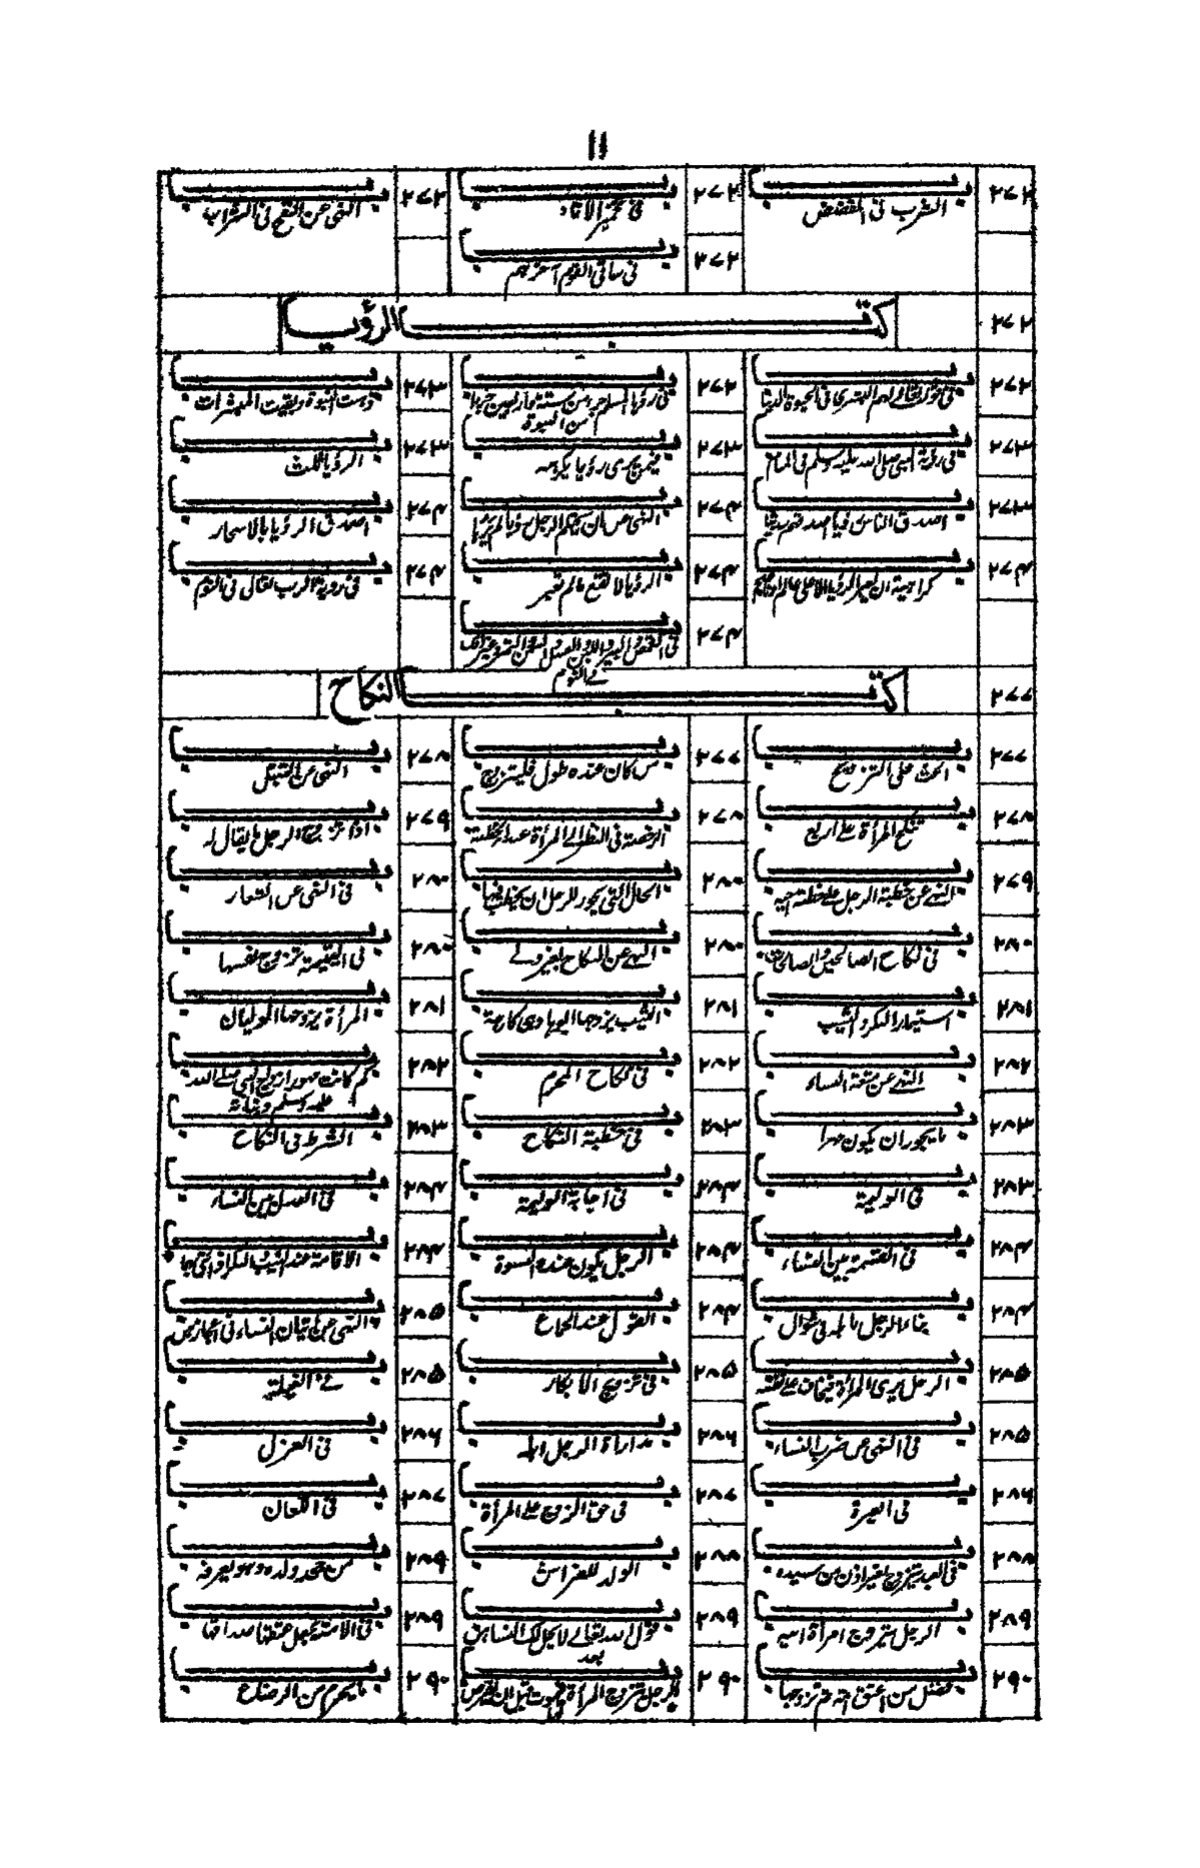 ۱۱
۲۷۲ باب الشرب فى المفضض ۲۷۲ باب فى تخمير الاناء ۲۷۲ باب النهى عن النفخ فى الشراب
۲۷۲ باب فى ساقى القوم آخرهم
۲۷۲ كتاب الرؤيا
۲۷۲ باب فى قوله تعالى لهم البشرى فى الحيوة الدنيا ۲۷۲ باب فى رؤيا المسلم جزء من ستة واربعين جزءا من النبوة ۲۷۳ باب ذهبت النبوة وبقيت المبشرات
۲۷۳ باب فى رؤية النبى صلى الله عليه وسلم فى المنام ۲۷۳ باب فيمن يرى رؤيا يكرهه ۲۷۳ باب الرؤيا ثلث
۲۷۳ باب اصدق الناس رؤيا اصدقهم حديثا ۲۷۴ باب النهى عن ان يتكلم الرجل برؤيا لم يرها ۲۷۴ باب اصدق الرؤيا بالاسحار
۲۷۴ باب كراهية ان يعبر الرؤيا الا على عالم او ناصح ۲۷۴ باب الرؤيا لا تقع مالم تعبر ۲۷۴ باب فى روية الرب تعالى فى النوم
۲۷۴ باب فى القمص والبير واللبن والعسل والسمن والتمر وغير ذلك فى النوم
۲۷۷ كتاب النكاح
۲۷۷ باب الحث على التزويج ۲۷۷ باب من كان عنده طول فليتزوج ۲۷۸ باب النهى عن التبتل
۲۷۸ باب تنكح المرأة على اربع ۲۷۸ باب الرخصة فى النظر الى المرأة عند الخطبة ۲۷۹ باب اذا تزوج الرجل ما يقال له
۲۷۹ باب النهى عن خطبة الرجل على خطبة اخيه ۲۸۰ باب الحال التى يجوز للرجل ان يخطب فيها ۲۸۰ باب فى النهى عن الشغار
۲۸۰ باب فى نكاح الصالحين والصالحات ۲۸۰ باب النهى عن النكاح بغير ولى ۲۸۰ باب فى اليتيمة تزوج نفسها
۲۸۱ باب استيمار البكر والثيب ۲۸۱ باب الثيب يزوجها ابوها وهى كارهة ۲۸۱ باب المرأة يزوجها الوليان
۲۸۲ باب النهى عن متعة النساء ۲۸۲ باب فى نكاح المحرم ۲۸۲ باب كم كانت مهور ازواج النبى صلى الله عليه وسلم وبناته
۲۸۳ باب ما يجوز ان يكون مهرا ۲۸۳ باب فى خطبة النكاح ۲۸۳ باب الشرط فى النكاح
۲۸۳ باب فى الوليمة ۲۸۴ باب فى اجابة الوليمة ۲۸۴ باب فى العدل بين النساء
۲۸۴ باب فى القسمة بين النساء ۲۸۴ باب الرجل يكون عنده النسوة ۲۸۴ باب الاقامة عند الثيب والبكر اذا بنى بها
۲۸۴ باب بناء الرجل باهله فى شوال ۲۸۴ باب القول عند الجماع ۲۸۵ باب النهى عن اتيان النساء فى اعجازهن
۲۸۵ باب الرجل يرى المرأة فيخاف على نفسه ۲۸۵ باب فى تزويج الابكار ۲۸۵ باب فى الغيلة
۲۸۵ باب فى النهى عن ضرب النساء ۲۸۶ باب مداراة الرجل اهله ۲۸۶ باب فى العزل
۲۸۶ باب فى الغيرة ۲۸۷ باب فى حق الزوج على المرأة ۲۸۷ باب فى اللعان
۲۸۸ باب فى العبد يتزوج بغير اذن من سيده ۲۸۸ باب الولد للفراش ۲۸۹ باب من جحد ولده وهو يعرفه
۲۸۹ باب الرجل يتزوج امرأة ابيه ۲۸۹ باب قول الله تعالى لا يحل لك النساء من بعد ۲۸۹ باب فى الامة يجعل عتقها صداقها
۲۹۰ باب فضل من اعتق امة ثم تزوجها ۲۹۰ باب الرجل يتزوج المرأة فيموت قبل ان يفرض لها ۲۹۰ باب ما يحرم من الرضاع